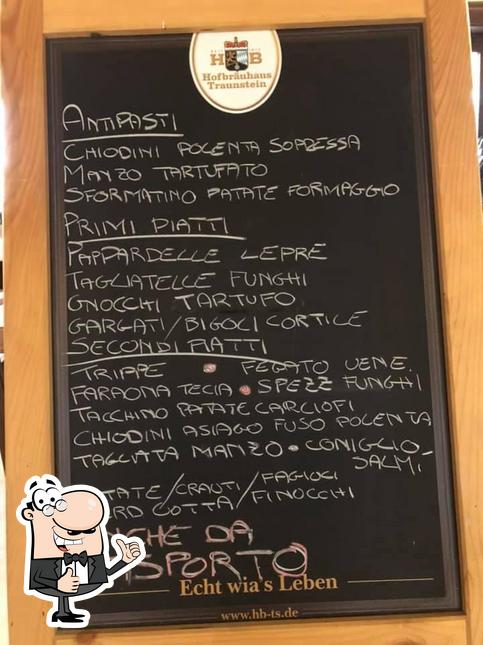 HB
Hofbräuhaus
Traunstein
ANTIPASTI
CHIODINI POLENTA SOPRESSA
MANZO TARTUFATO
SFORMATINO PATATE FORMAGGIO
PRIMI PIATTI
PAPPARDELLE LEPRE
TAGLIATELLE FUNGHI
GNOCCHI TARTUFO
GARGATI/BIGOLI CORTILE
SECONDI PIATTI
TRIPPE • FEGATO VENE.
FARAONA TECIA • SPEZZ FUNGHI
TACCHINO PATATE CARCIOFI
CHIODINI ASIAGO FUSO POLENTA
TAGLIATA MANZO • CONIGLIO
SALMI'
TATE/CRAUTI/FAGIOLI
RD COTTA/FINOCCHI
CHE DA
SPORTO
Echt wia's Leben
www.hb-ts.de